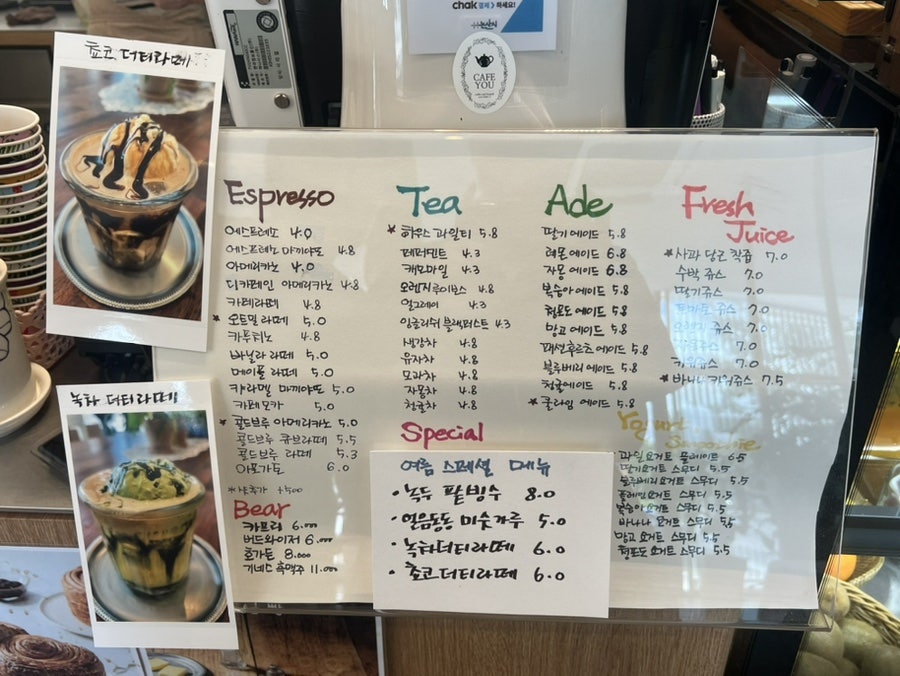 쵸코 더티라떼
녹차 더티라떼
chak 결제 하세요!
CAFE
YOU
Espresso
에스프레소 4.0
에스프레소 마끼야또 4.8
아메리카노 4.0
디카페인 아메리카노 4.8
카페라떼 4.8
* 오트밀 라떼 5.0
카푸치노 4.8
바닐라 라떼 5.0
메이플 라떼 5.0
카라멜 마끼야또 5.0
카페모카 5.0
* 콜드브루 아메리카노 5.0
콜드브루 큐브라떼 5.5
콜드브루 라떼 5.3
아포가토 6.0
* 샷추가 +500
Bear
카프리 6.000
버드와이저 6.000
호가든 8.000
기네스 흑맥주 11.000
Tea
* 하우스 과일티 5.8
페퍼민트 4.3
캐모마일 4.3
오렌지루이보스 4.8
얼그레이 4.3
잉글리쉬 블랙퍼스트 4.3
생강차 4.8
유자차 4.8
모과차 4.8
자몽차 4.8
청귤차 4.8
Special
여름 스페셜 메뉴
· 녹두 팥빙수 8.0
· 얼음동동 미숫가루 5.0
· 녹차더티라떼 6.0
· 쵸코더티라떼 6.0
Ade
딸기에이드 5.8
레몬에이드 6.8
자몽 에이드 6.8
복숭아에이드 5.8
청포도 에이드 5.8
망고 에이드 5.8
패션후르츠 에이드 5.8
블루베리에이드 5.8
청귤에이드 5.8
* 쿨라임 에이드 5.8
Fresh
Juice
* 사과 당근 착즙 7.0
수박 쥬스 7.0
딸기쥬스 7.0
토마토 쥬스 7.0
오렌지 쥬스 7.0
쥬스 7.0
키위쥬스 7.0
* 바나나 키위쥬스 7.5
Yogurt
Smoothie
과일요거트 플레이트 6.5
딸기요거트 스무디 5.5
블루베리요거트 스무디 5.5
플레인요거트 스무디 5.5
복숭아요거트 스무디 5.5
바나나 요거트 스무디 5.5
망고 요거트 스무디 5.5
청포도 요거트 스무디 5.5